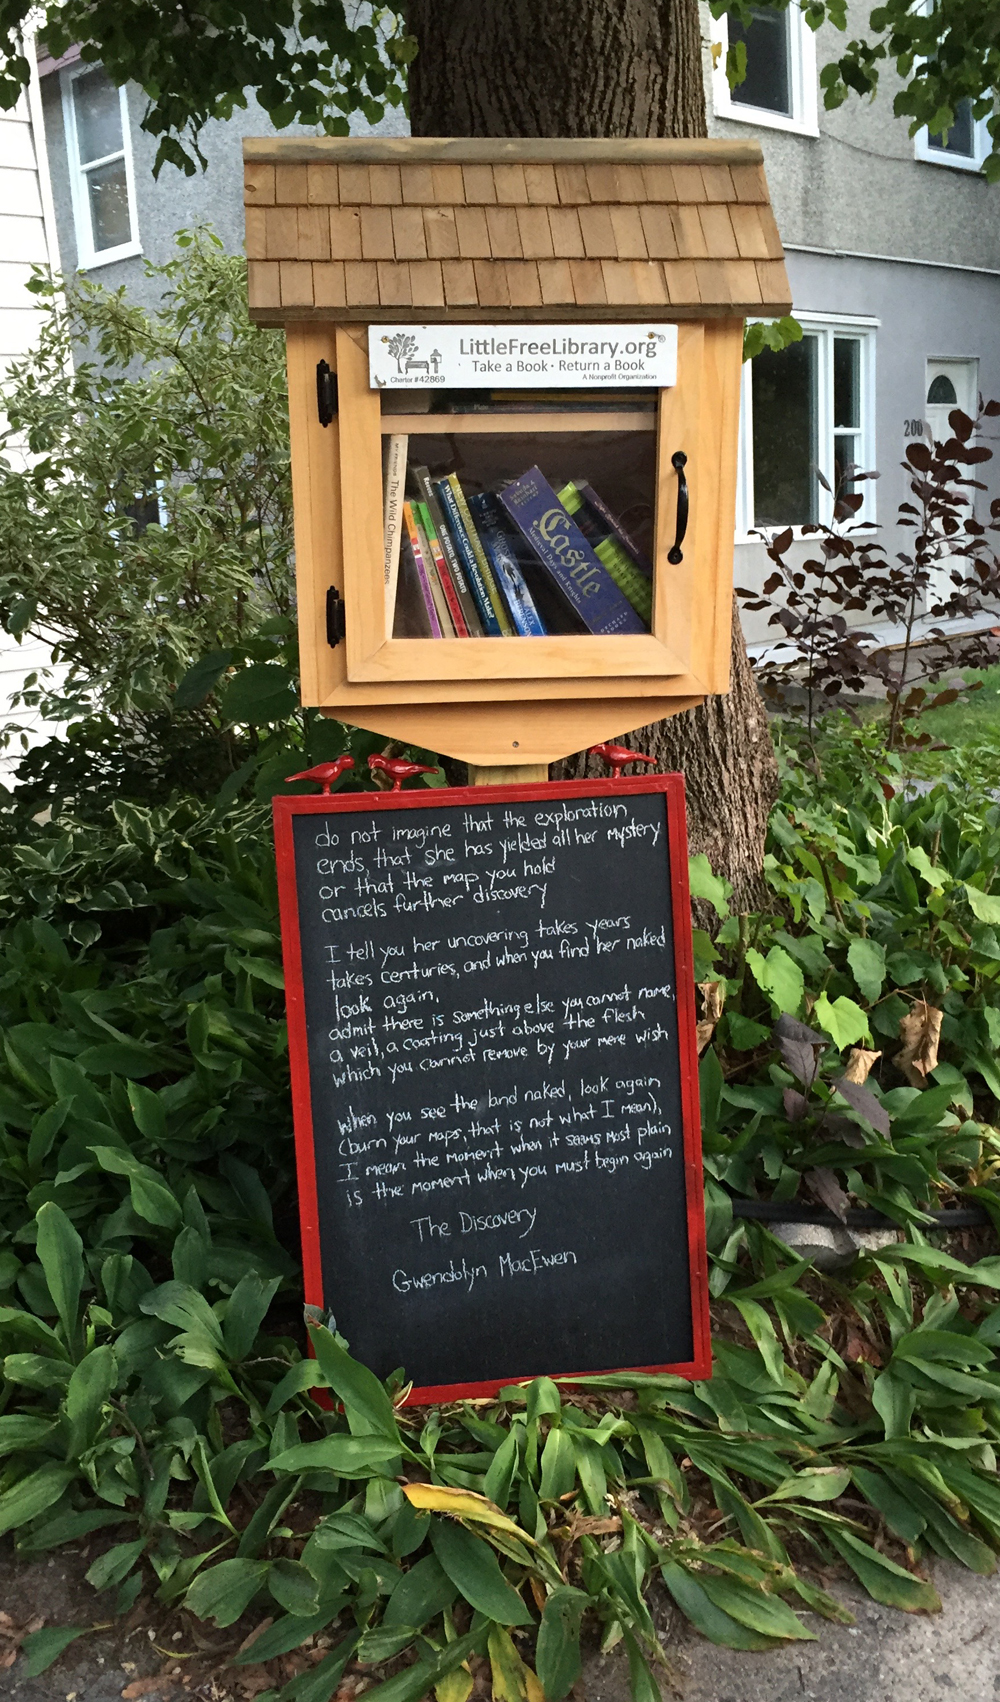 LittleFreeLibrary.org®
Take a Book · Return a Book
A Nonprofit Organization
Charter #42869
200
The Wild Chimpanzees
ONE POTATO, TWO POTATO
What Difference Could a Revolution Make?
Castle
Medieval Days and Knights
do not imagine that the exploration
ends, that she has yielded all her mystery
or that the map you hold
cancels further discovery
I tell you her uncovering takes years
takes centuries, and when you find her naked
look again,
admit there is something else you cannot name,
a veil, a coating just above the flesh
which you cannot remove by your mere wish
when you see the land naked, look again
(burn your maps, that is not what I mean),
I mean the moment when it seems most plain
is the moment when you must begin again
The Discovery
Gwendolyn MacEwen